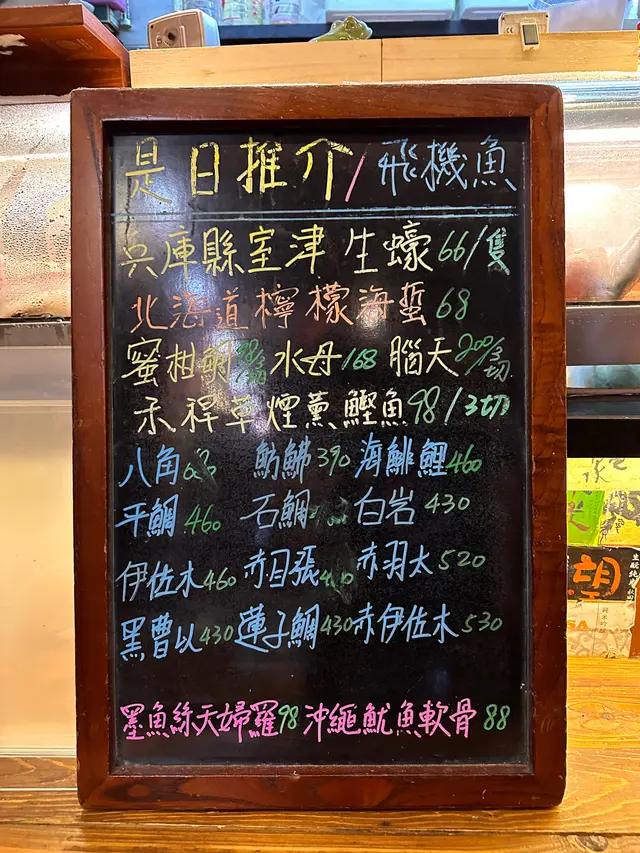 是日推介/飛機魚
兵庫縣室津 生蠔66/隻
北海道檸檬海蜇68
蜜柑鯛 水母168 腦天200/3切
禾稈草煙薰鰹魚98/3切
八角 魴鮄390 海鯡鯉460
平鯛460 石鯛 白岩430
伊佐木460 赤目張 赤羽太520
黑曹以430 蓮子鯛430 赤伊佐木530
墨魚絲天婦羅98 沖繩魷魚軟骨88
生酛純米